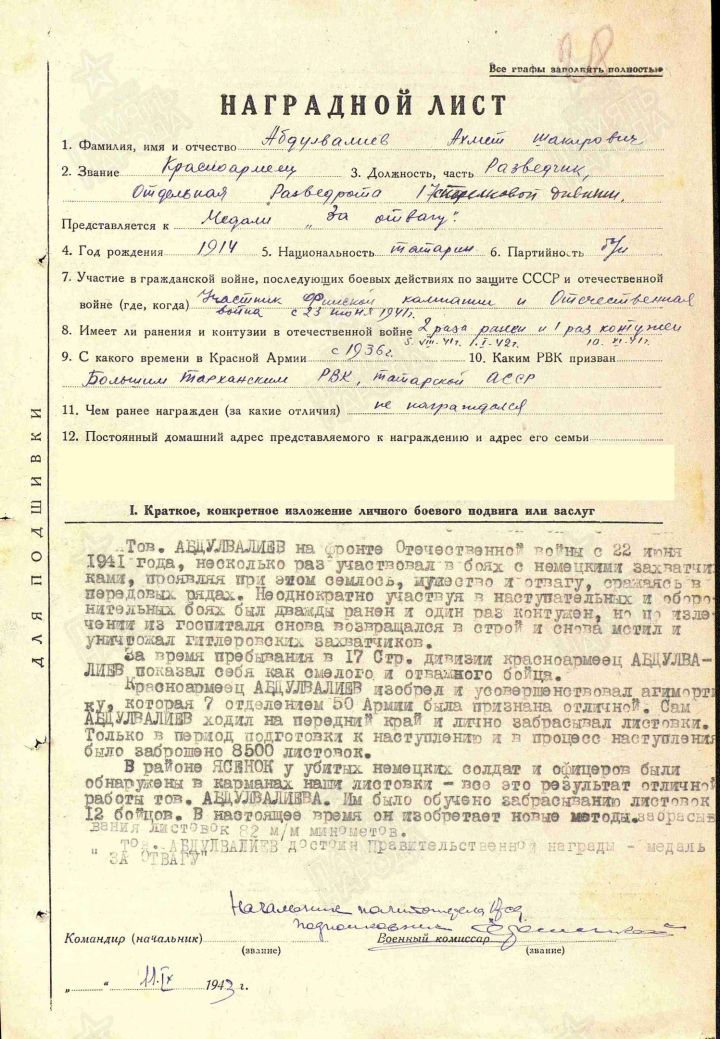 38
Все графы заполнять полностью
НАГРАДНОЙ ЛИСТ
1. Фамилия, имя и отчество Абдулвалиев Ахмет Шакирович
2. Звание Красноармеец 3. Должность, часть Разведчик,
Отдельная Разведрота 17 стрелковой дивизии.
Представляется к Медали „За отвагу".
4. Год рождения 1914 5. Национальность татарин 6. Партийность б/п
7. Участие в гражданской войне, последующих боевых действиях по защите СССР и отечественной
войне (где, когда) Участник Финской кампании и Отечественная
война с 23 июня 1941г.
8. Имеет ли ранения и контузии в отечественной войне 2 раза ранен и 1 раз контужен
5.VIII.41г. 1.I.42г. 10.XI.41г.
9. С какого времени в Красной Армии с 1936г. 10. Каким РВК призван
Большим Тарханским РВК, Татарской АССР
11. Чем ранее награжден (за какие отличия) не награждался
12. Постоянный домашний адрес представляемого к награждению и адрес его семьи
ДЛЯ ПОДШИВКИ
I. Краткое, конкретное изложение личного боевого подвига или заслуг
Тов. АБДУЛВАЛИЕВ на фронте Отечественной войны с 22 июня
1941 года, несколько раз участвовал в боях с немецкими захватчи-
ками, проявляя при этом семлось, мужество и отвагу, сражаясь в
передовых рядах. Неоднократно участвуя в наступательных и оборо-
нительных боях был дважды ранен и один раз контужен, но по изле-
чении из госпиталя снова возвращался в строй и снова мстил и
уничтожал гитлеровских захватчиков.
За время пребывания в 17 Стр. дивизии красноармеец АБДУЛВА-
ЛИЕВ показал себя как смелого и отважного бойца.
Красноармеец АБДУЛВАЛИЕВ изобрел и усовершенствовал агиморт
ку, которая 7 отделением 50 Армии была признана отличной. Сам
АБДУЛВАЛИЕВ ходил на передний край и лично забрасывал листовки.
Только в период подготовки к наступлению и в процесс наступления
было заброшено 8500 листовок.
В районе ЯСЕНОК у убитых немецких солдат и офицеров были
обнаружены в карманах наши листовки - все это результат отличной
работы тов. АБДУЛВАЛИЕВА. Им было обучено забрасыванию листовок
12 бойцов. В настоящее время он изобретает новые методы забрасы
вания листовок 82 м/м минометов.
Тов. АБДУЛВАЛИЕВ достоин Правительственной награды - медаль
" ЗА ОТВАГУ"
Начальник политотдела 17 сд
подполковник
Командир (начальник) Военный комиссар
(звание) (звание)
„ " 11.IX 1943 г.